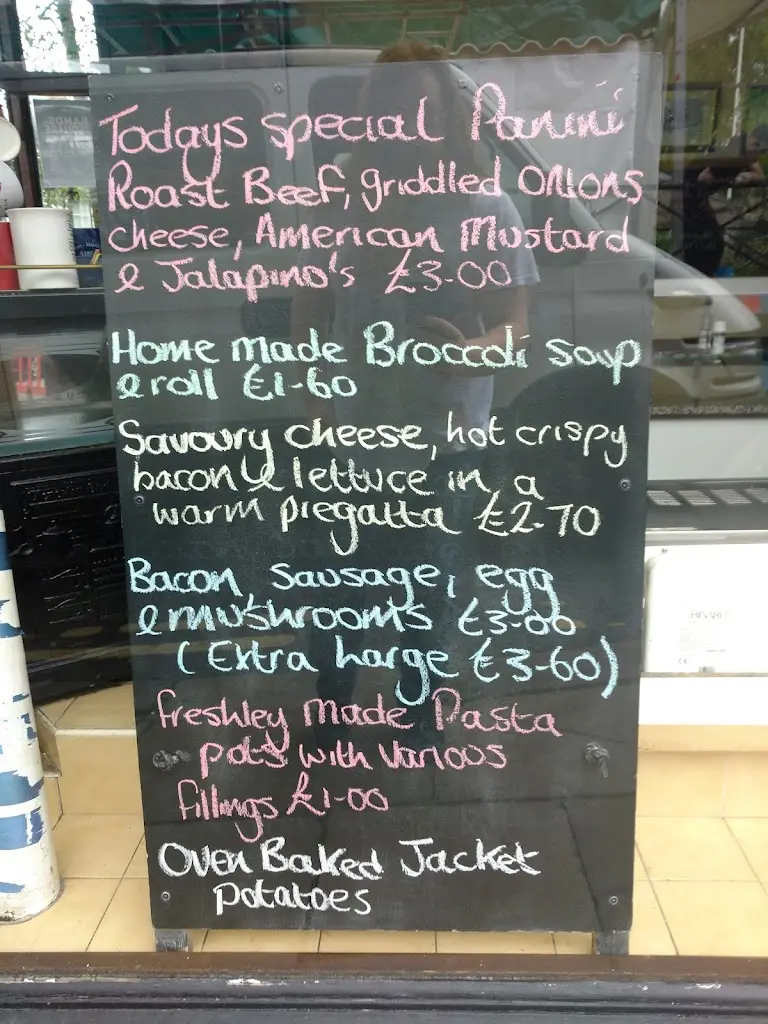 Todays special Panini
Roast Beef, griddled Onions
cheese, American Mustard
& Jalapino's £3-00
Home made Broccoli soup
& roll £1-60
Savoury cheese, hot crispy
bacon & lettuce in a
warm piegatta £2-70
Bacon, Sausage, egg
& mushrooms £3-00
(Extra Large £3-60)
freshley made Pasta
pots with various
fillings £1-00
Oven Baked Jacket
potatoes